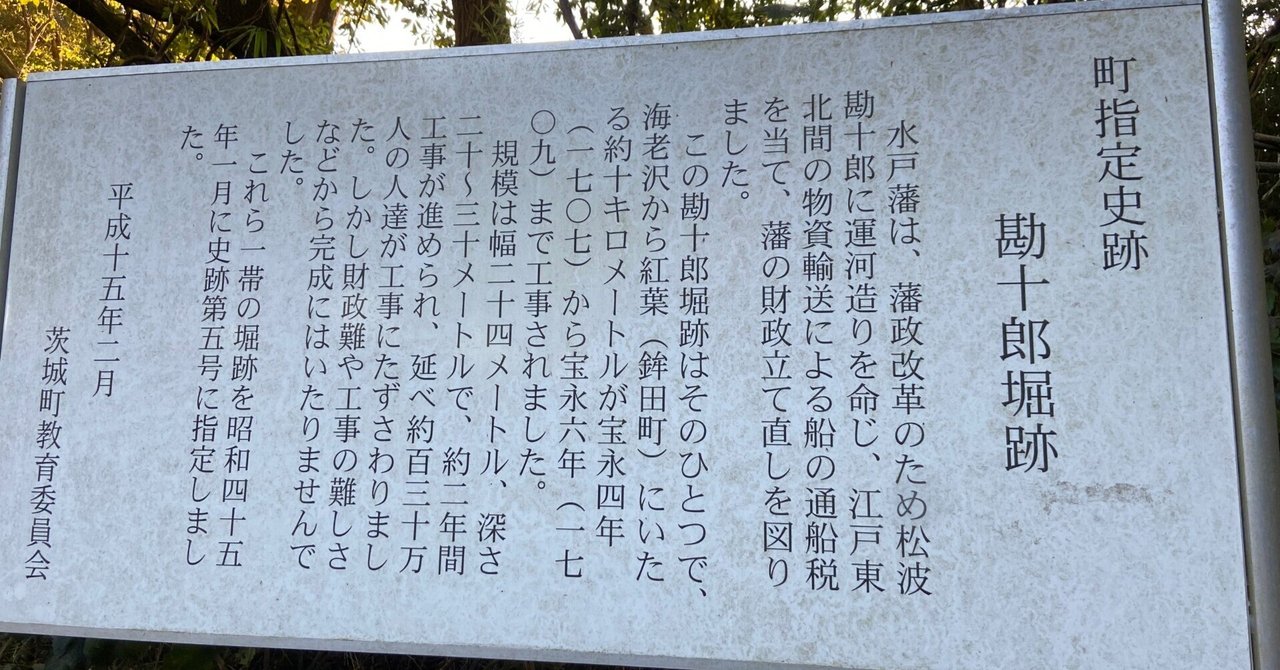 町指定史跡
勘十郎堀跡
水戸藩は、藩政改革のため松波
勘十郎に運河造りを命じ、江戸東
北間の物資輸送による船の通船税
を当て、藩の財政立て直しを図り
ました。
この勘十郎堀跡はそのひとつで、
海老沢から紅葉（鉾田町）にいた
る約十キロメートルが宝永四年
（一七〇七）から宝永六年（一七
〇九）まで工事されました。
規模は幅二十四メートル、深さ
二十～三十メートルで、約二年間
工事が進められ、延べ約百三十万
人の人達が工事にたずさわりまし
た。しかし財政難や工事の難しさ
などから完成にはいたりませんで
した。
これら一帯の堀跡を昭和四十五
年一月に史跡第五号に指定しまし
た。
平成十五年二月
茨城町教育委員会